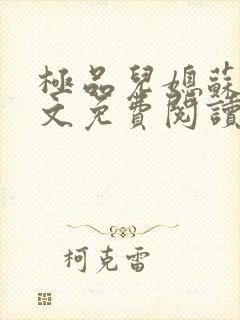 極品兒媳蘇
文免費閱讀
柯克雷